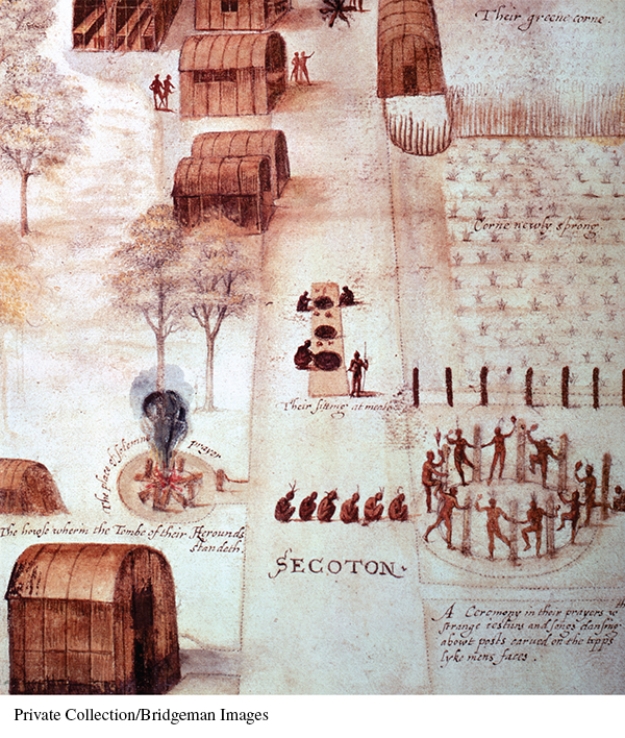 Their greene corne
Corne newly sprong
Their sitting at meate
The place of solemne prayer
The howse wherin the Tombe of their Herounds
standeth.
SECOTON.
A Ceremony in their prayers wth
strange iesturs and songs dansing
abowt posts carued on the topps
lyke mens faces.
Private Collection/Bridgeman Images